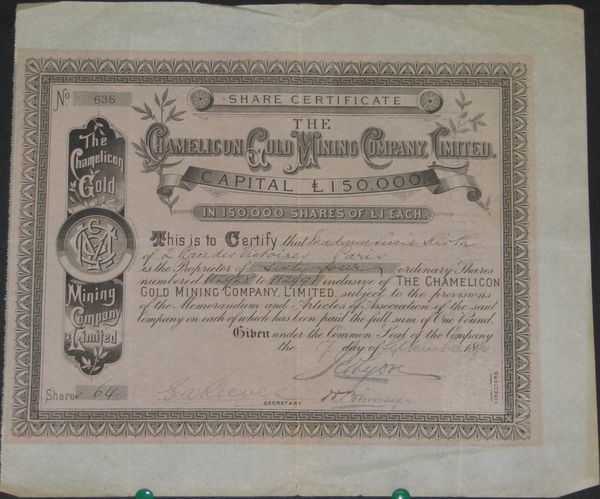 No 636
SHARE CERTIFICATE
THE
CHAMELICON GOLD MINING COMPANY, LIMITED.
CAPITAL £150,000
IN 150,000 SHARES OF £1 EACH.
The Chamelicon Gold
Mining Company Limited
This is to Certify that Madame Lucie
of 2 Place des Victoires Paris
is the Proprietor of Sixty four ordinary Shares
numbered to inclusive of THE CHAMELICON
GOLD MINING COMPANY, LIMITED, subject to the provisions
of the Memorandum and Articles of Association of the said
company on each of which has been paid the full sum of One Pound.
Given under the Common Seal of the Company
the day of September 18
Shares 64
SECRETARY
DIRECTORS